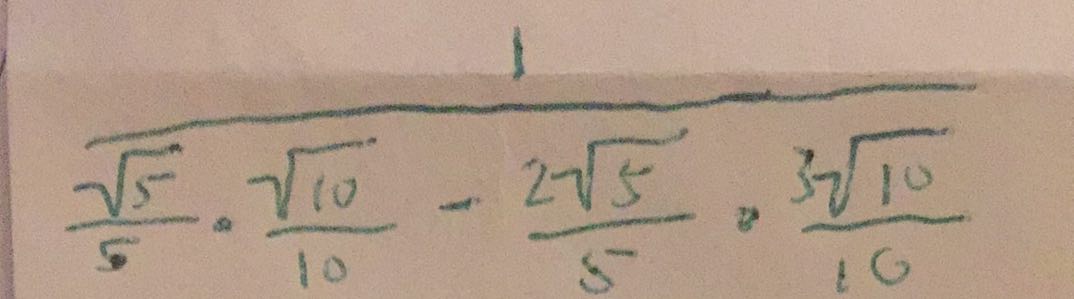 1
√5/5 · √10/10 - 2√5/5 · 3√10/10